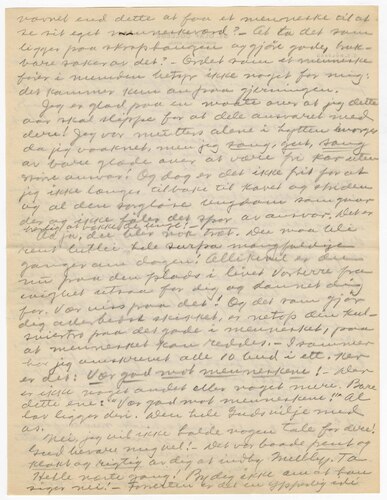 vornet end dette at faa et menneske til at
se sit eget menneskeværd? - At ta det som
ligger paa skraphaugen og gjøre gode, bruk-
bare saker av det? - Ordet som et menneske
fører i munden betyr ikke noget for mig:
det kommer kun an paa gjerningen.
Jeg er glad paa en maate over at jeg dette
aar skal slippe for at dele ansvaret med
dere! Jeg var mutters alene i hytten
da jeg vaaknet, men jeg sang, gut, sang
av bare glæde over at være fri for
store ansvar! Og dog er det ikke frit for at
jeg ikke længes tilbake til kavet og striden
og al den sorgløse ungdom som
der og ikke føler det spor av ansvar. Det er
Aa, du blir nok træt. Du maa bli
rent utlei hele surpa mangfoldige
ganger om dagen! Allikevel er du
nu paa den plads i livet Vorherre fra
evighet utsaa for dig og dannet dig
for. Vær viss paa det! Og det som gjør
dig allerbedst skikket, er netop din
paa det gode i mennesket, paa
at mennesket kan reddes. - I sommer
har jeg omskrevet alle 10 bud i ett. Her
er det: Vær god mot menneskene! - Der
er ikke noget andet eller noget mere. Bare
dette ene: "Vær god mot menneskene." Al
lov ligger der. Den hele Guds vilje med
os.
Nei, jeg vil ikke holde nogen tale for dere!
Gud bevare mig vel! Det var baade pent og
klokt og rigtig av dig at indby Mellbye. Ta
Helle neste gang! Bry dig ikke om at han
siger nei! - Forresten er det en